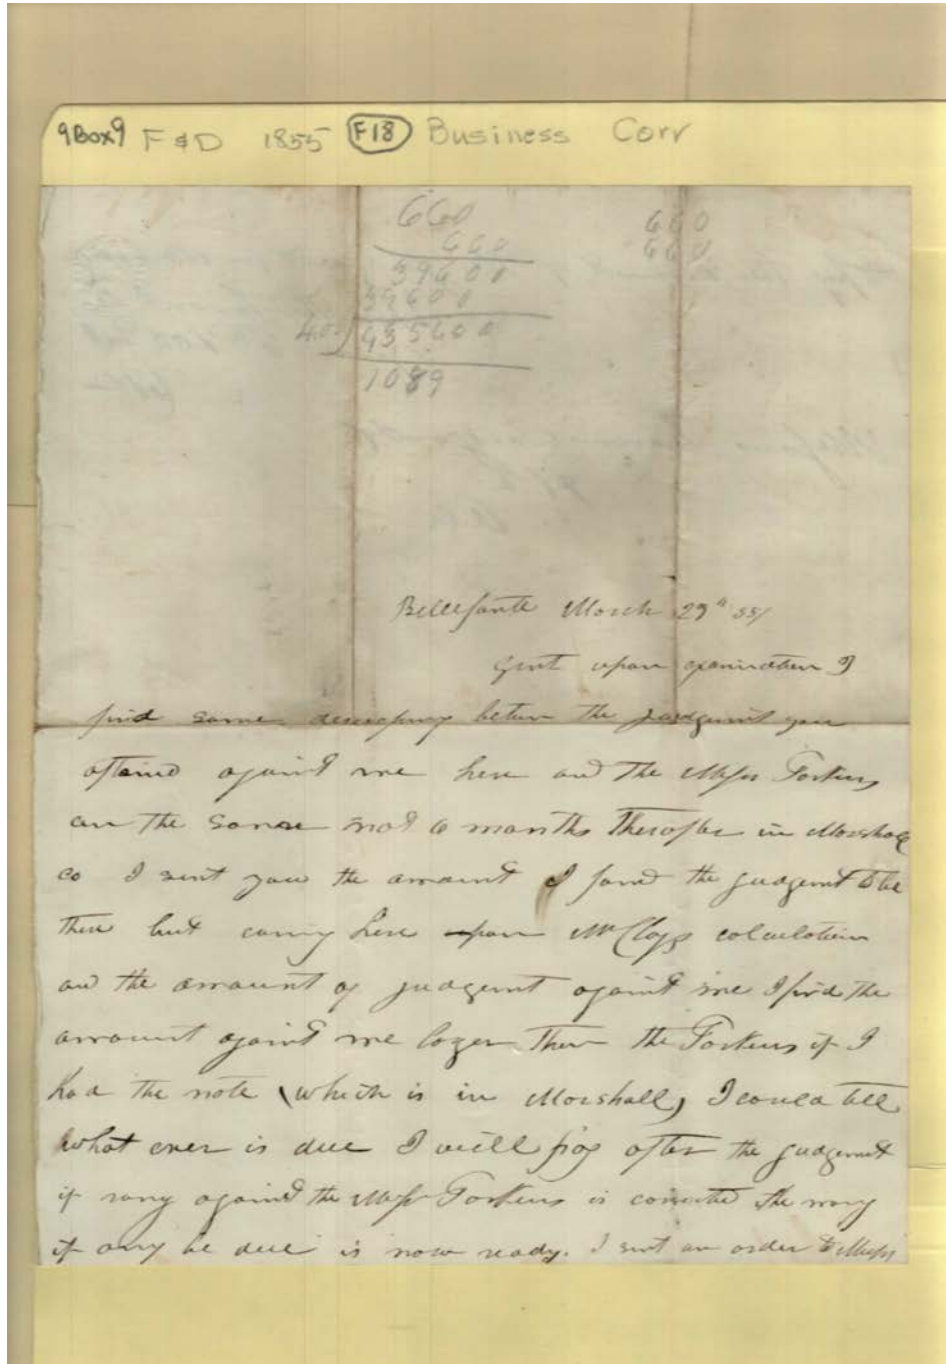 9Box9 F & D 1855 F18 Business Corr
660 660
660 660
39600
39600
400) 435600
1089
Bellefonte March 29th 55/
Gent upon examination I
find some descrepncy betwen the judgemnt you
against me here and the Messr
on the same not 6 months therafter in Marshall
co I sent you the amount I found the judgemnt to be
there but coming here upon Mr Clays calculation
and the amount of judgemnt against me I find the
amount against me larger then the if I
had the note (which is in Marshall) I could tell
what ever is due I will pay after the judgemnt
if against the Messr is the mony
if any be due is now ready. I sent an order to Messrs